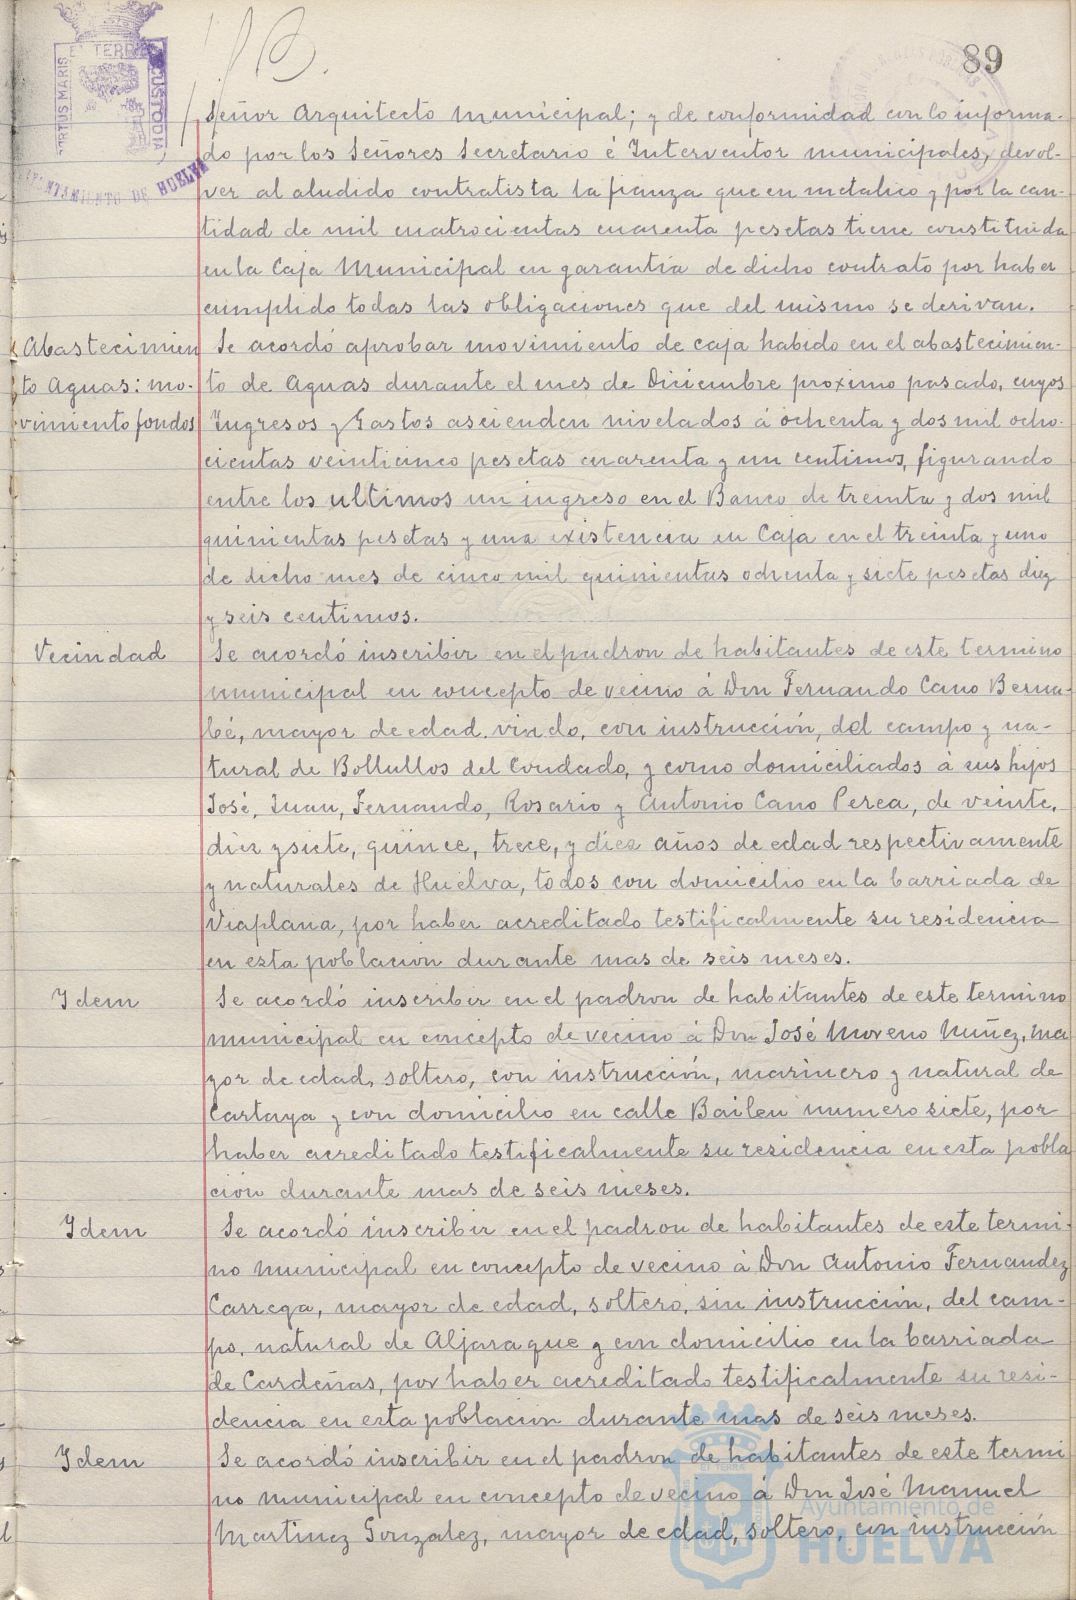 89
PORTUS MARIS
ET TERRÆ
CUSTODIA
AYUNTAMIENTO DE HUELVA
Señor Arquitecto Municipal; y de conformidad con lo informa-
do por los Señores Secretario é Interventor municipales, devol-
ver al aludido contratista la fianza que en metalico y por la can-
tidad de mil cuatrocientas cuarenta pesetas tiene constituida
en la Caja Municipal en garantía de dicho contrato por haber
cumplido todas las obligaciones que del mismo se derivan.
Abastecimien
to Aguas: mo-
vimiento fondos
Se acordó aprobar movimiento de caja habido en el abastecimien-
to de Aguas durante el mes de Diciembre proximo pasado, cuyos
Ingresos y Gastos ascienden nivelados á ochenta y dos mil ocho-
cientas veinticinco pesetas cuarenta y un centimos, figurando
entre los ultimos un ingreso en el Banco de treinta y dos mil
quinientas pesetas y una existencia en Caja en el treinta y uno
de dicho mes de cinco mil quinientas ochenta y siete pesetas diez
y seis centimos.
Vecindad
Se acordó inscribir en el padron de habitantes de este termino
municipal en concepto de vecino á Don Fernando Cano Berna-
bé, mayor de edad, viudo, con instrucción, del campo y na-
tural de Bollullos del Condado, y como domiciliados a sus hijos
José, Juan, Fernando, Rosario y Antonio Cano Perea, de veinte,
diez y siete, quince, trece, y diez años de edad respectivamente
y naturales de Huelva, todos con domicilio en la barriada de
Viaplana, por haber acreditado testificalmente su residencia
en esta poblacion durante mas de seis meses.
Idem
Se acordó inscribir en el padron de habitantes de este termino
municipal en concepto de vecino á Don José Moreno Nuñez, ma
yor de edad, soltero, con instrucción, marinero y natural de
Cartaya y con domicilio en calle Bailen numero siete, por
haber acreditado testificalmente su residencia en esta pobla
ción durante mas de seis meses.
Idem
Se acordó inscribir en el padron de habitantes de este termi-
no municipal en concepto de vecino á Don Antonio Fernandez
Carrega, mayor de edad, soltero, sin instrucción, del cam-
po, natural de Aljaraque y con domicilio en la barriada
de Cardeñas, por haber acreditado testificalmente su resi-
dencia en esta poblacion durante mas de seis meses.
Idem
Se acordó inscribir en el padron de habitantes de este termi
no municipal en concepto de vecino á Don José Manuel
Martinez Gonzalez, mayor de edad, soltero, con instrucción
Ayuntamiento de
HUELVA